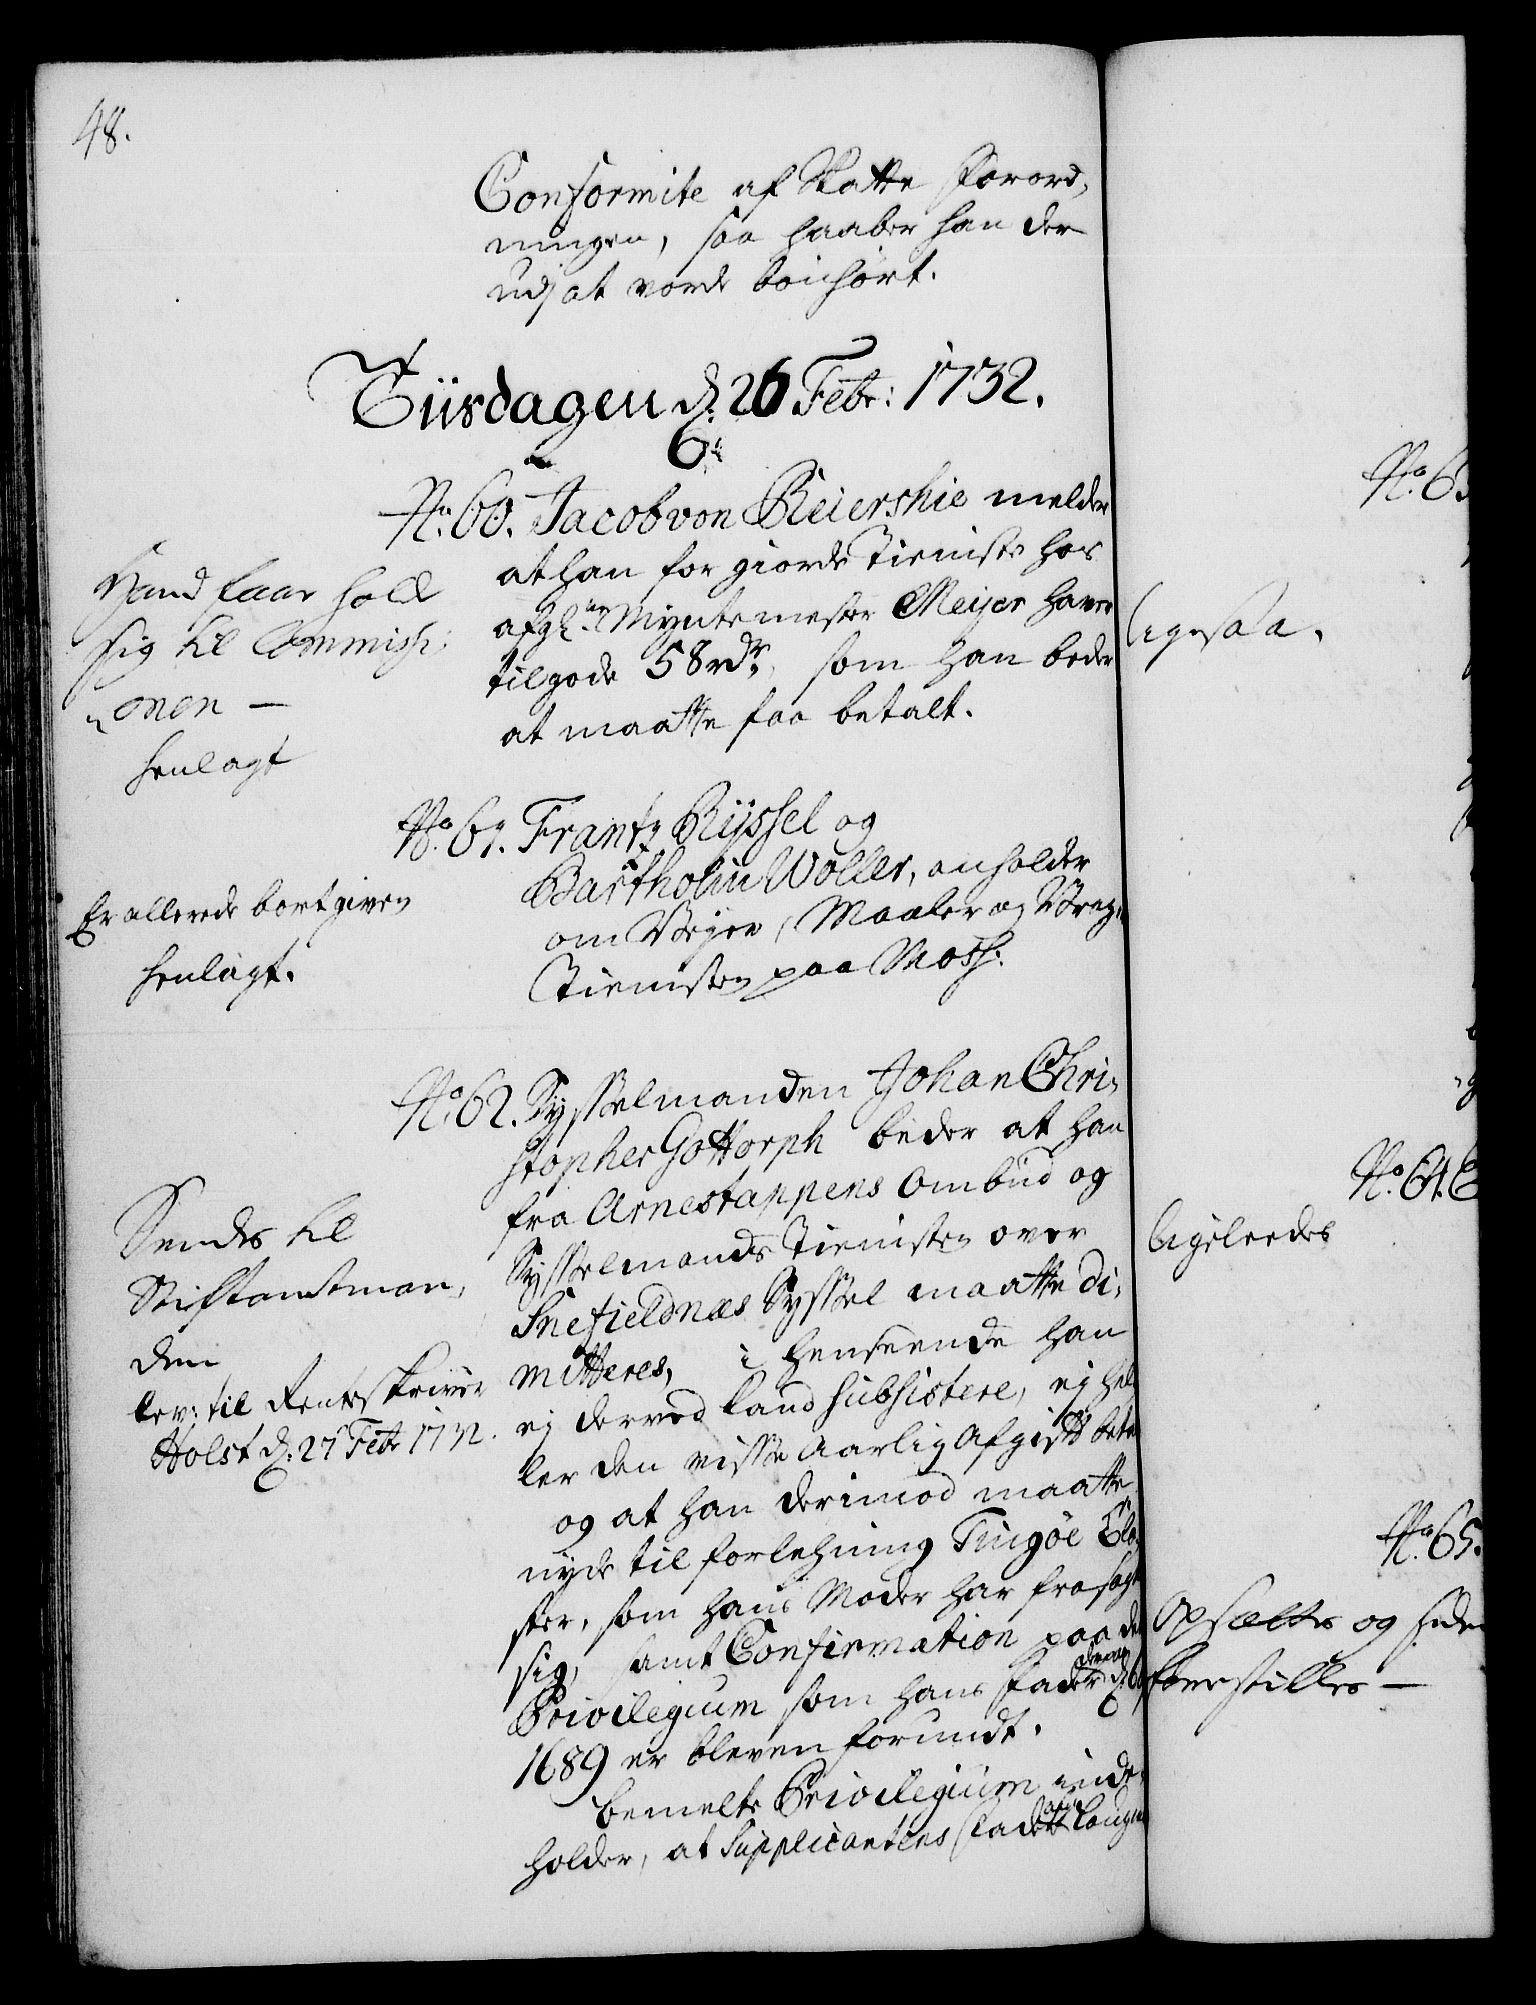 48.
Conformite af Skatte Forord,
ningen, saa haaber han der
udj at vorde bønhört.
Tiisdagen d: 26 Febr: 1732.
No. 60. Jacob von Reiershie melder
at han for giorde Tieniste hos
afg: Myntemester Meijer haver
tilgode 58 rdr, som han beder
at maatte faa betalt.
Hand faar holde
sig til Commissi-
onen —
henlagt
No. 61. Frantz Rÿssel og
Bartholin Woller, anholder
om Vejer, Maaler og Vrager
Tienisten paa Moss.
Er allerede bortgiven
henlagt.
No. 62. Sysselmanden Johan Chri,
stopher Gottorph beder at han
fra Arnestappens Ombud og
Sysselmands Tienisten over
Snefieldnæs Syssel maatte di,
mitteres, i henseende han
ej derved kand subsistere, ej hel,
ler den visse aarlig Afgift beta
og at han derimod maatte
nyde til forlehning Tingöe Clo,
ster, som hans Moder har frasagt
sig, samt Confirmation paa det
Privilegium som hans Fader d: 6
1689 er bleven forundt.
bemelte Privilegium inde,
holder, at Supplicantens Fader Laug
Sendes til
Stiftamtman,
den
lev: til Renteskriver
Holst d: 27 Febr 1732.
No. 63
ligesaa.
No. 64. C
ligeleedes
No. 65.
Opsættes og siden
forestilles —